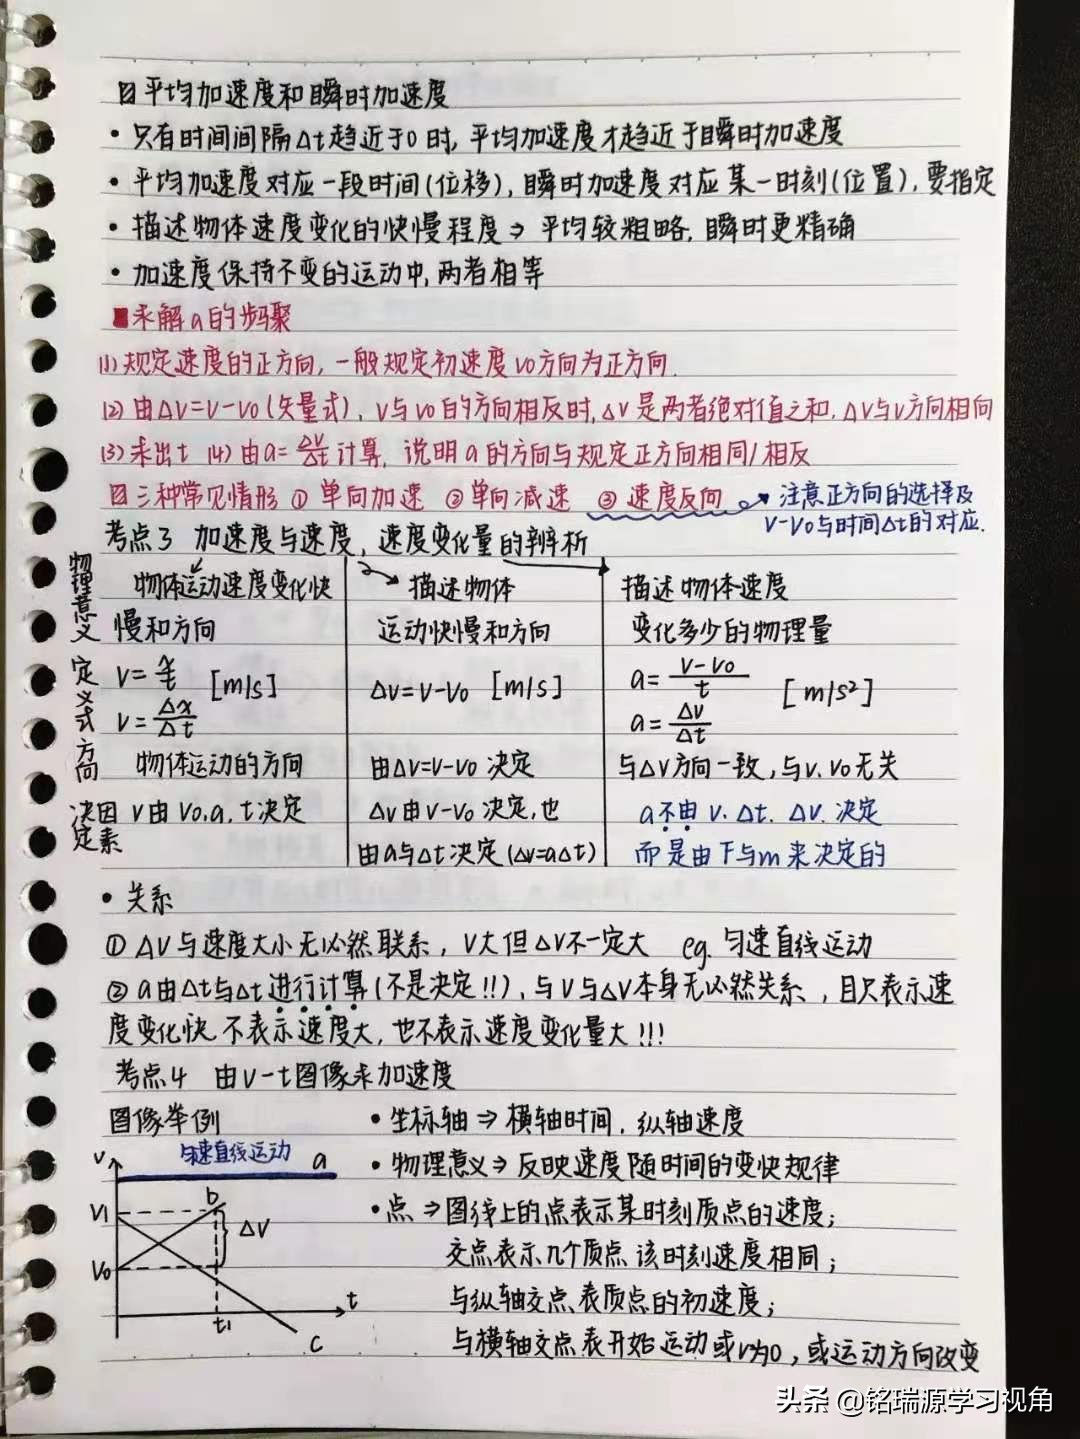 平均加速度和瞬时加速度
· 只有时间间隔Δt趋近于0时, 平均加速度才趋近于瞬时加速度
· 平均加速度对应一段时间(位移), 瞬时加速度对应某一时刻(位置), 要指定
· 描述物体速度变化的快慢程度⇒ 平均较粗略, 瞬时更精确
· 加速度保持不变的运动中, 两者相等
求解a的步骤
(1) 规定速度的正方向, 一般规定初速度v0方向为正方向.
(2) 由ΔV=V-V0(矢量式), V与V0的方向相反时, ΔV是两者绝对值之和, ΔV与V方向相同
(3) 求出t (4) 由a=ΔV/Δt计算, 说明a的方向与规定正方向相同/相反
三种常见情形 ① 单向加速 ② 单向减速 ③ 速度反向
注意正方向的选择及
V-V0与时间Δt的对应.
考点3 加速度与速度, 速度变化量的辨析
物理意义
物体运动速度变化快
慢和方向
描述物体
运动快慢和方向
描述物体速度
变化多少的物理量
定义式
V=x/t [m/s]
V=Δx/Δt
ΔV=V-V0 [m/s]
a=(V-V0)/t [m/s²]
a=ΔV/Δt
方向
物体运动的方向
由ΔV=V-V0 决定
与ΔV方向一致, 与V.V0无关
决定因素
V由V0.a.t决定
ΔV由V-V0决定, 也
由a与Δt决定(ΔV=aΔt)
a不由V.Δt.ΔV.决定
而是由F与m来决定的
· 关系
① ΔV与速度大小无必然联系, V大但ΔV不一定大 eg. 匀速直线运动
② a由Δt与Δt进行计算(不是决定!!), 与V与ΔV本身无必然关系, 且只表示速
度变化快 不表示速度大, 也不表示速度变化量大!!!
考点4 由V-t图像求加速度
图像举例
· 坐标轴⇒横轴时间. 纵轴速度
· 物理意义⇒反映速度随时间的变快规律
· 点⇒图线上的点表示某时刻质点的速度;
交点表示几个质点该时刻速度相同;
与纵轴交点表质点的初速度;
与横轴交点表开始运动或V为0, 或运动方向改变
匀速直线运动 a
V
V1
b
ΔV
V0
t
t1
c
头条 @铭瑞源学习视角